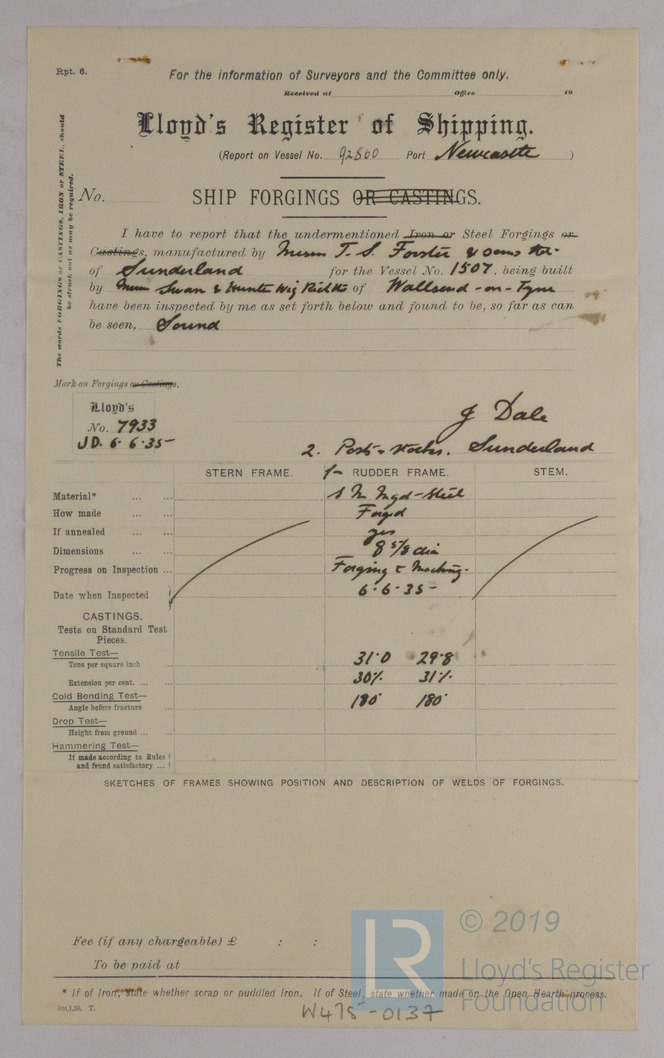 Rpt. 6.
For the information of Surveyors and the Committee only.
Received at Office 19
Lloyd's Register of Shipping.
(Report on Vessel No. 92800 Port Newcastle )
The words FORGINGS or CASTINGS, IRON or STEEL, should
be struck out as may be required.
No. SHIP FORGINGS OR CASTINGS.
I have to report that the undermentioned Iron or Steel Forgings or
Castings, manufactured by Messrs T. S. Forster & Sons
of Sunderland for the Vessel No. 1507, being built
by Messrs Swan & Hunter Wig Rich of Wallsend-on-Tyne
have been inspected by me as set forth below and found to be, so far as can
be seen, Sound
Mark on Forgings or Castings.
Lloyd's
No. 7933
JD. 6.6.35-
J Dale
2. Post stocks. Sunderland
STERN FRAME. for RUDDER FRAME. STEM.
Material* ... ... S M Ingot-Steel
How made ... ... Forged
If annealed ... ... yes
Dimensions ... ... 8 5/8 dia
Progress on Inspection ... Forging & Maching.
Date when Inspected 6.6.35-
CASTINGS.
Tests on Standard Test
Pieces.
Tensile Test—
Tons per square inch ... 31.0 29.8
Extension per cent. ... ... 30% 31%
Cold Bending Test—
Angle before fracture ... 180° 180°
Drop Test—
Height from ground ... ...
Hammering Test—
If made according to Rules
and found satisfactory ...
SKETCHES OF FRAMES SHOWING POSITION AND DESCRIPTION OF WELDS OF FORGINGS.
Fee (if any chargeable) £ : :
To be paid at
* If of Iron, state whether scrap or puddled Iron. If of Steel, state whether made on the Open Hearth process.
W475-0137
LR
© 2019
Lloyd's Register
Foundation